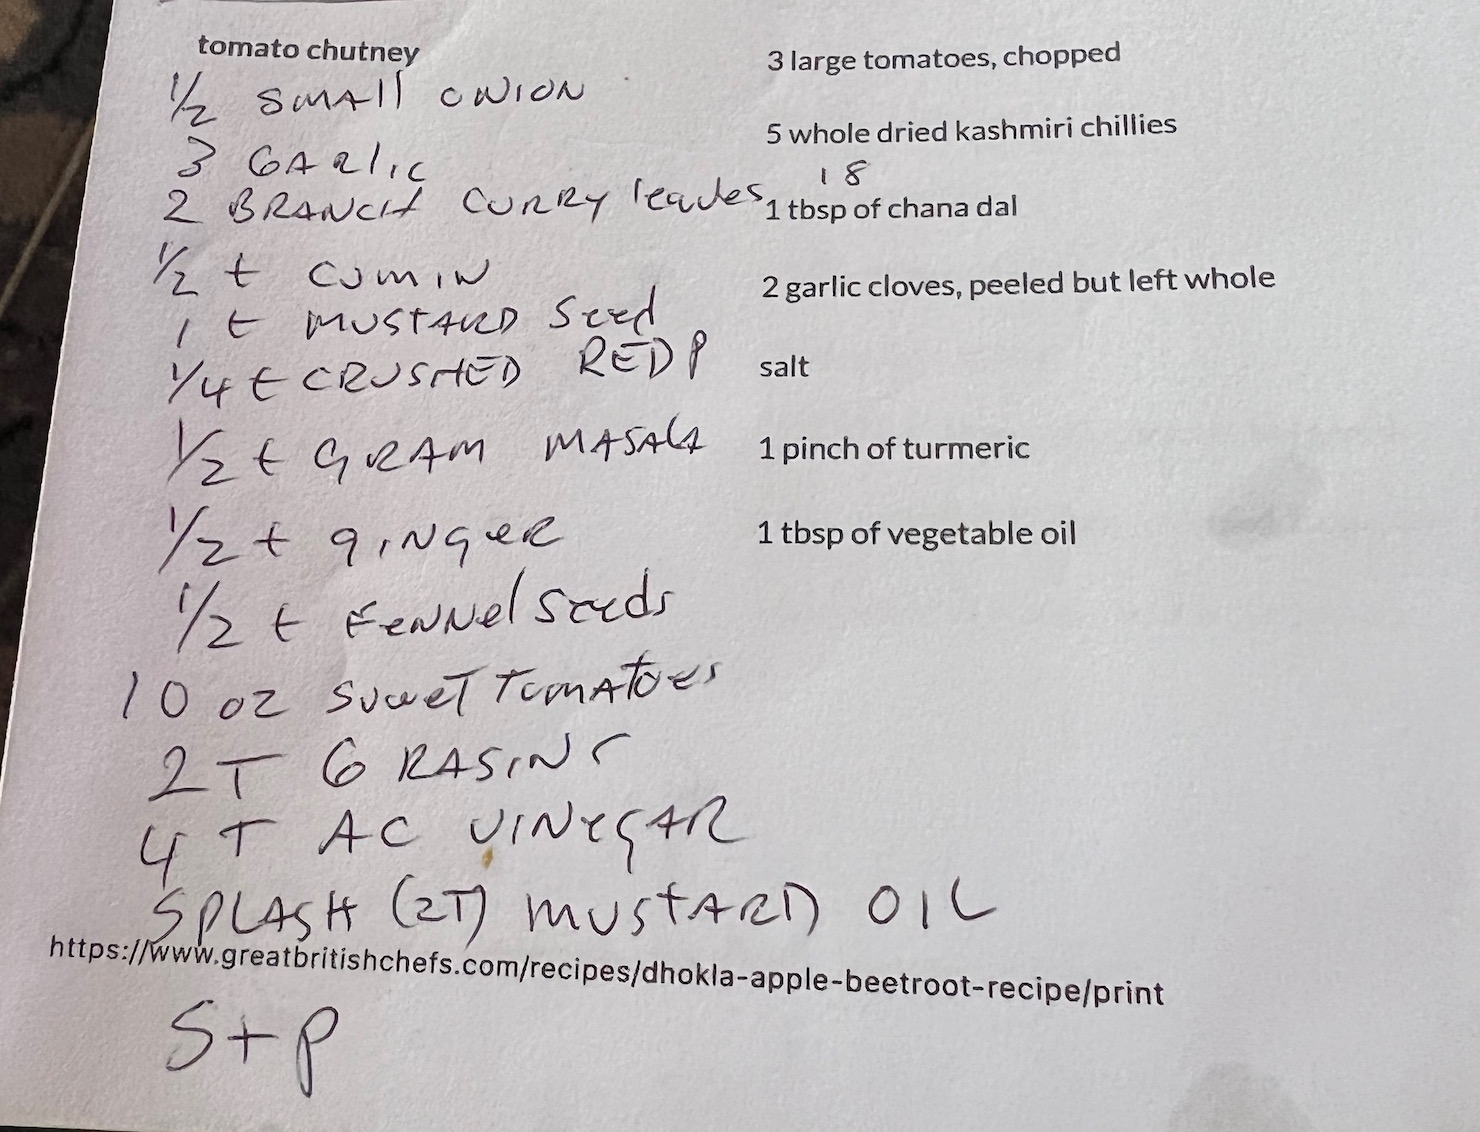 tomato chutney
3 large tomatoes, chopped
1/2 SMAll ONION
5 whole dried kashmiri chillies
3 GARlic
18
2 BRANCH CURRY leaves
1 tbsp of chana dal
1/2 t CUMIN
2 garlic cloves, peeled but left whole
1 t MUSTARD Seed
1/4 t CRUSHED RED P
salt
1/2 t GRAM MASALA
1 pinch of turmeric
1/2 t gINgeR
1 tbsp of vegetable oil
1/2 t FeNNel Seeds
10 oz SweeT TomAToes
2 T G RASINS
4 T AC VINEGAR
SPLASH (2T) MUSTARD OIL
https://www.greatbritishchefs.com/recipes/dhokla-apple-beetroot-recipe/print
S+P